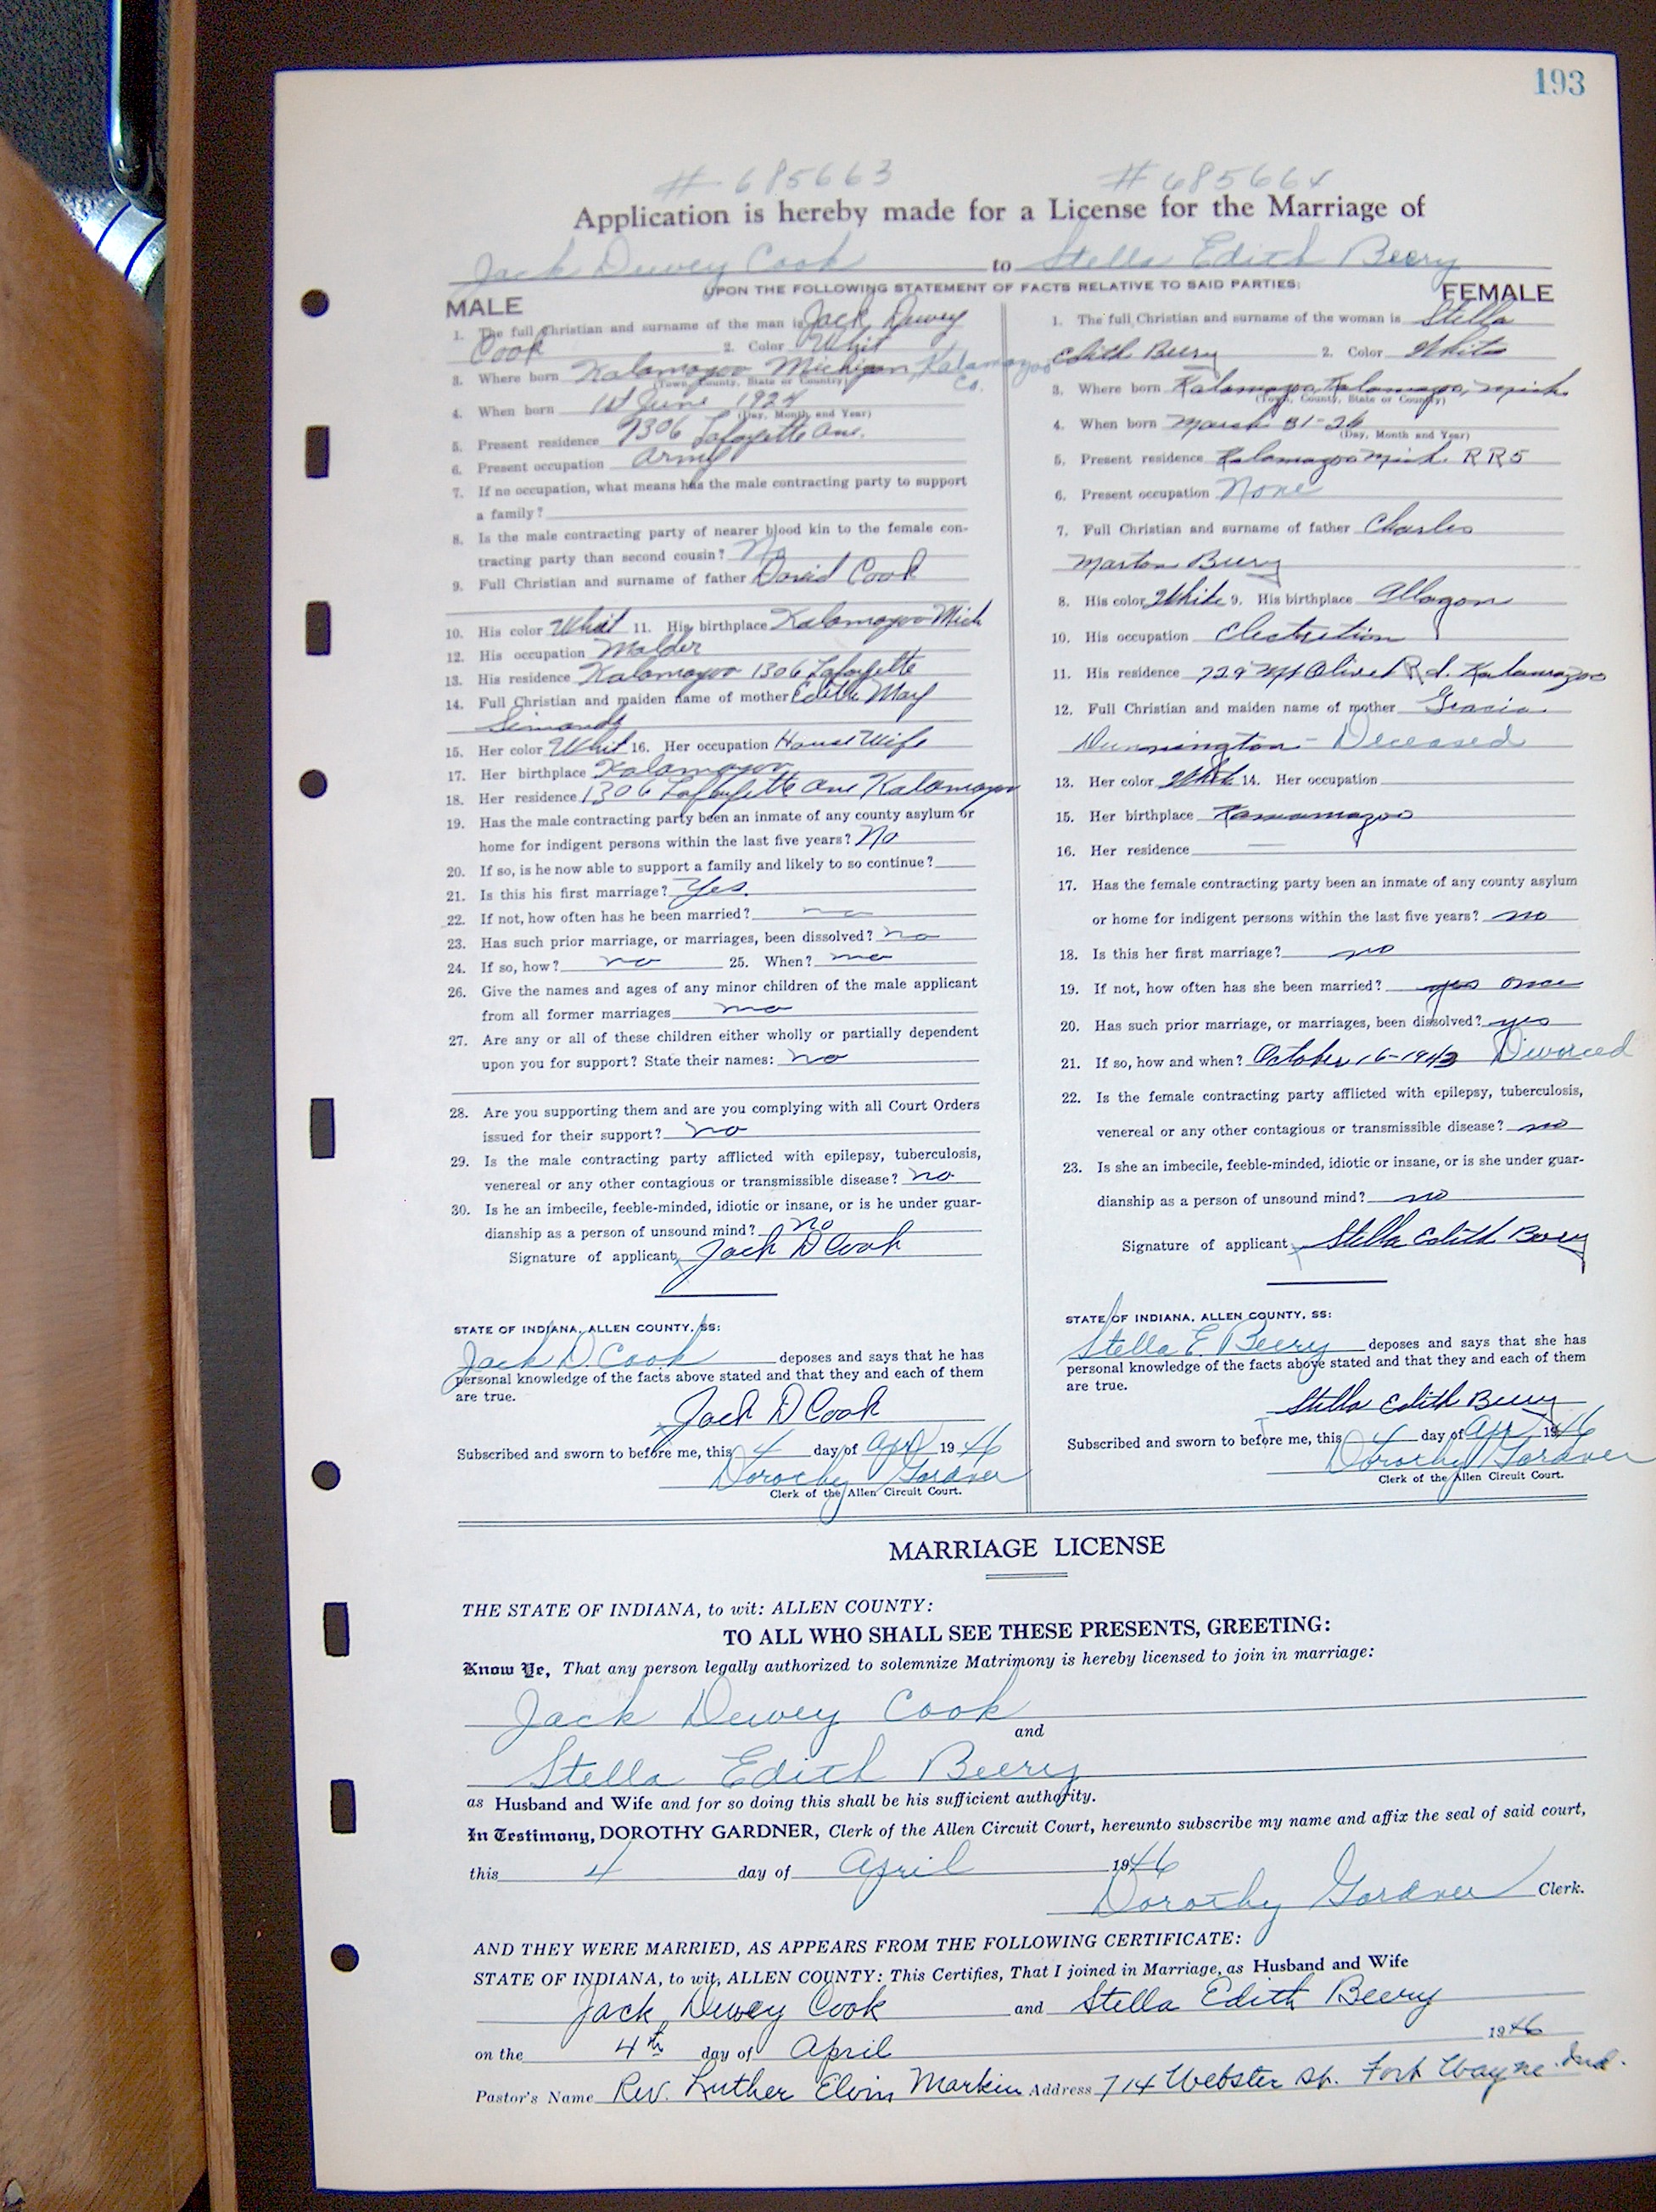 193
# 685663 # 685664
Application is hereby made for a License for the Marriage of
Jack Dewey Cook to Stella Edith Beery
UPON THE FOLLOWING STATEMENT OF FACTS RELATIVE TO SAID PARTIES:
MALE
1. The full Christian and surname of the man is Jack Dewey
Cook 2. Color Whit
3. Where born Kalamazoo Michigan Kalamazoo Co.
(Town, County, State or Country)
4. When born 1st June 1924
(Day, Month and Year)
5. Present residence 1306 Lafayette Ave.
6. Present occupation Army
7. If no occupation, what means has the male contracting party to support
a family?
8. Is the male contracting party of nearer blood kin to the female con-
tracting party than second cousin? No
9. Full Christian and surname of father David Cook
10. His color Whit 11. His birthplace Kalamazoo Mich
12. His occupation Molder
13. His residence Kalamazoo 1306 Lafayette
14. Full Christian and maiden name of mother Edith May
Simonds
15. Her color Whit 16. Her occupation House Wife
17. Her birthplace Kalamazoo
18. Her residence 1306 Lafayette Ave Kalamazoo
19. Has the male contracting party been an inmate of any county asylum or
home for indigent persons within the last five years? No
20. If so, is he now able to support a family and likely to so continue?
21. Is this his first marriage? Yes.
22. If not, how often has he been married? no
23. Has such prior marriage, or marriages, been dissolved? no
24. If so, how? no 25. When? no
26. Give the names and ages of any minor children of the male applicant
from all former marriages no
27. Are any or all of these children either wholly or partially dependent
upon you for support? State their names: no
28. Are you supporting them and are you complying with all Court Orders
issued for their support? no
29. Is the male contracting party afflicted with epilepsy, tuberculosis,
venereal or any other contagious or transmissible disease? no
30. Is he an imbecile, feeble-minded, idiotic or insane, or is he under guar-
dianship as a person of unsound mind? no
Signature of applicant, Jack D Cook
STATE OF INDIANA, ALLEN COUNTY, SS:
Jack D. Cook deposes and says that he has
personal knowledge of the facts above stated and that they and each of them
are true.
Jack D Cook
Subscribed and sworn to before me, this 4 day of Apr 1946
Dorothy Gardner
Clerk of the Allen Circuit Court.
FEMALE
1. The full Christian and surname of the woman is Stella
Edith Beery 2. Color White
3. Where born Kalamazoo, Kalamazoo, Mich
(Town, County, State or Country)
4. When born March 31-26
(Day, Month and Year)
5. Present residence Kalamazoo Mich. RR5
6. Present occupation None
7. Full Christian and surname of father Charles
Marton Beery
8. His color White 9. His birthplace Allagon
10. His occupation Electrition
11. His residence 729 Mt Olivet Rd. Kalamazoo
12. Full Christian and maiden name of mother Gracia
Dunnington - Deceased
13. Her color White 14. Her occupation
15. Her birthplace Kamamazoo
16. Her residence —
17. Has the female contracting party been an inmate of any county asylum
or home for indigent persons within the last five years? no
18. Is this her first marriage? no
19. If not, how often has she been married? yes once
20. Has such prior marriage, or marriages, been dissolved? yes
21. If so, how and when? October 16-1943 Divorced
22. Is the female contracting party afflicted with epilepsy, tuberculosis,
venereal or any other contagious or transmissible disease? no
23. Is she an imbecile, feeble-minded, idiotic or insane, or is she under guar-
dianship as a person of unsound mind? no
Signature of applicant, Stella Edith Beery
STATE OF INDIANA, ALLEN COUNTY, SS:
Stella E. Beery deposes and says that she has
personal knowledge of the facts above stated and that they and each of them
are true.
Stella Edith Beery
Subscribed and sworn to before me, this 4 day of Apr 1946
Dorothy Gardner
Clerk of the Allen Circuit Court.
MARRIAGE LICENSE
THE STATE OF INDIANA, to wit: ALLEN COUNTY:
TO ALL WHO SHALL SEE THESE PRESENTS, GREETING:
Know Ye, That any person legally authorized to solemnize Matrimony is hereby licensed to join in marriage:
Jack Dewey Cook
and
Stella Edith Beery
as Husband and Wife and for so doing this shall be his sufficient authority.
In Testimony, DOROTHY GARDNER, Clerk of the Allen Circuit Court, hereunto subscribe my name and affix the seal of said court,
this 4 day of April 1946
Dorothy Gardner Clerk.
AND THEY WERE MARRIED, AS APPEARS FROM THE FOLLOWING CERTIFICATE:
STATE OF INDIANA, to wit, ALLEN COUNTY: This Certifies, That I joined in Marriage, as Husband and Wife
Jack Dewey Cook and Stella Edith Beery
on the 4th day of April 1946
Pastor's Name Rev. Luther Elvin Markin Address 714 Webster St. Fort Wayne Ind.